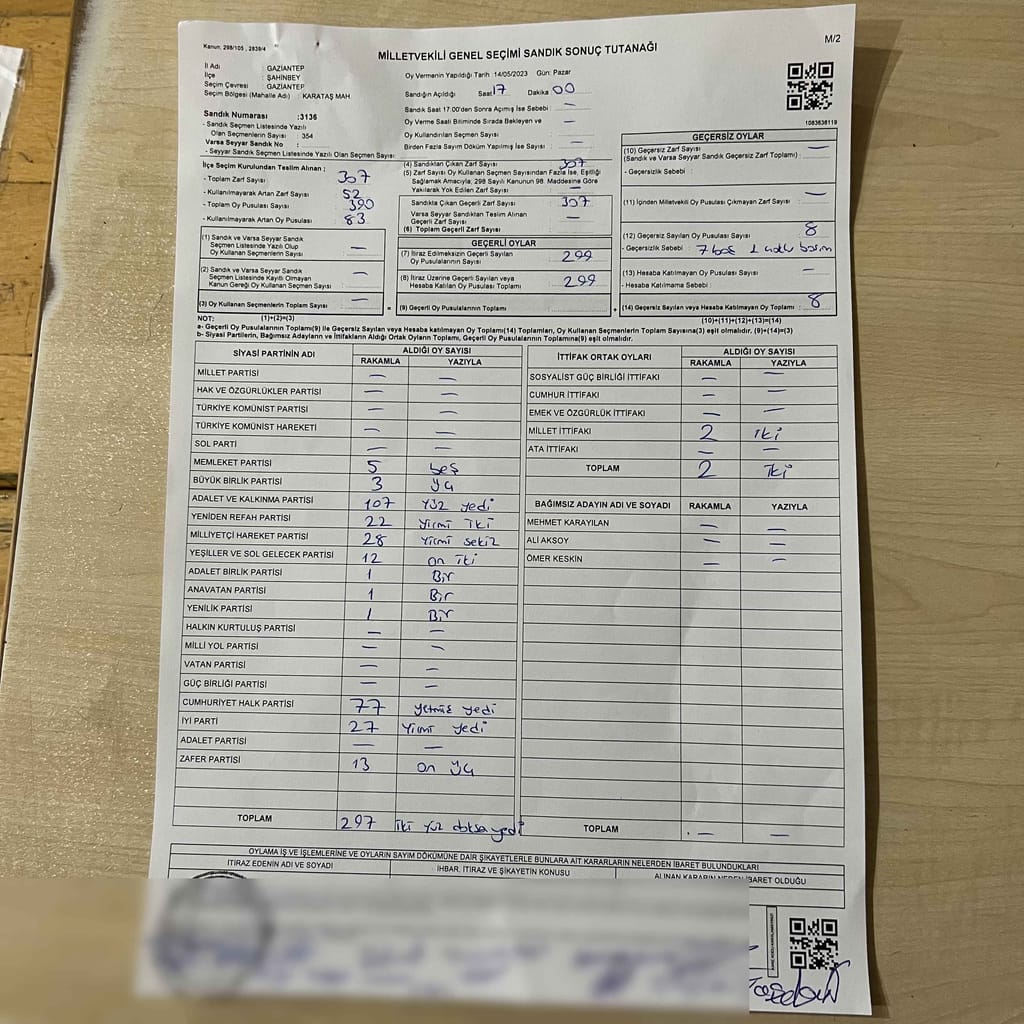 Kanun, 298/105 , 2839/4
M/2
MİLLETVEKİLİ GENEL SEÇİMİ SANDIK SONUÇ TUTANAĞI
İl Adı : GAZİANTEP
İlçe : ŞAHİNBEY
Seçim Çevresi : GAZİANTEP
Seçim Bölgesi (Mahalle Adı) : KARATAŞ MAH.
Oy Vermenin Yapıldığı Tarih 14/05/2023 Gün: Pazar
Sandığın Açıldığı Saat 17 Dakika 00
Sandık Saat 17.00'den Sonra Açımış İse Sebebi : —
Oy Verme Saati Bitiminde Sırada Bekleyen ve
Oy Kullandırılan Seçmen Sayısı : —
Birden Fazla Sayım Döküm Yapılmış İse Sayısı : —
1083638119
Sandık Numarası :3136
- Sandık Seçmen Listesinde Yazılı
Olan Seçmenlerin Sayısı : 354
Varsa Seyyar Sandık No :
- Seyyar Sandık Seçmen Listesinde Yazılı Olan Seçmen Sayısı
İlçe Seçim Kurulundan Teslim Alınan ;
- Toplam Zarf Sayısı : 307
- Kullanılmayarak Artan Zarf Sayısı : 52
- Toplam Oy Pusulası Sayısı : 390
- Kullanılmayarak Artan Oy Pusulası : 83
(1) Sandık ve Varsa Seyyar Sandık
Seçmen Listesinde Yazılı Olup
Oy Kullanan Seçmenlerin Sayısı : —
(2) Sandık ve Varsa Seyyar Sandık
Seçmen Listesinde Kayıtlı Olmayan
Kanun Gereği Oy Kullanan Seçmen Sayısı : —
(3) Oy Kullanan Seçmenlerin Toplam Sayısı : —
(4) Sandıktan Çıkan Zarf Sayısı : 307
(5) Zarf Sayısı Oy Kullanan Seçmen Sayısından Fazla İse, Eşitliği
Sağlamak Amacıyla, 298 Sayılı Kanunun 98. Maddesine Göre
Yakılarak Yok Edilen Zarf Sayısı : —
Sandıkta Çıkan Geçerli Zarf Sayısı : 307
Varsa Seyyar Sandıktan Teslim Alınan
Geçerli Zarf Sayısı : —
(6) Toplam Geçerli Zarf Sayısı :
GEÇERLİ OYLAR
(7) İtiraz Edilmeksizin Geçerli Sayılan
Oy Pusulalarının Sayısı : 299
(8) İtiraz Üzerine Geçerli Sayılan veya
Hesaba Katılan Oy Pusulaları Toplamı : 299
= (9) Geçerli Oy Pusulalarının Toplamı :
GEÇERSİZ OYLAR
(10) Geçersiz Zarf Sayısı : —
(Sandık ve Varsa Seyyar Sandık Geçersiz Zarf Toplamı) :
- Geçersizlik Sebebi :
(11) İçinden Milletvekili Oy Pusulası Çıkmayan Zarf Sayısı : —
(12) Geçersiz Sayılan Oy Pusulası Sayısı : 8
- Geçersizlik Sebebi : 7 boş 1
(13) Hesaba Katılmayan Oy Pusulası Sayısı : —
- Hesaba Katılmama Sebebi :
+ (14) Geçersiz Sayılan veya Hesaba Katılmayan Oy Toplamı : 8
NOT: (1)+(2)=(3) (10)+(11)+(12)+(13)=(14)
a- Geçerli Oy Pusulalarının Toplamı(9) ile Geçersiz Sayılan veya Hesaba katılmayan Oy Toplamı(14) Toplamları, Oy Kullanan Seçmenlerin Toplam Sayısına(3) eşit olmalıdır. (9)+(14)=(3)
b- Siyasi Partilerin, Bağımsız Adayların ve İttifakların Aldığı Ortak Oyların Toplamı, Geçerli Oy Pusulalarının Toplamına(9) eşit olmalıdır.
SİYASİ PARTİNİN ADI ALDIĞI OY SAYISI
RAKAMLA YAZIYLA
MİLLET PARTİSİ — —
HAK VE ÖZGÜRLÜKLER PARTİSİ — —
TÜRKİYE KOMÜNİST PARTİSİ — —
TÜRKİYE KOMÜNİST HAREKETİ — —
SOL PARTİ — —
MEMLEKET PARTİSİ 5 beş
BÜYÜK BİRLİK PARTİSİ 3 üç
ADALET VE KALKINMA PARTİSİ 107 Yüz yedi
YENİDEN REFAH PARTİSİ 22 yirmi iki
MİLLİYETÇİ HAREKET PARTİSİ 28 yirmi sekiz
YEŞİLLER VE SOL GELECEK PARTİSİ 12 on iki
ADALET BİRLİK PARTİSİ 1 Bir
ANAVATAN PARTİSİ 1 Bir
YENİLİK PARTİSİ 1 Bir
HALKIN KURTULUŞ PARTİSİ — —
MİLLİ YOL PARTİSİ — —
VATAN PARTİSİ — —
GÜÇ BİRLİĞİ PARTİSİ — —
CUMHURİYET HALK PARTİSİ 77 yetmiş yedi
İYİ PARTİ 27 Yirmi yedi
ADALET PARTİSİ — —
ZAFER PARTİSİ 13 on üç
TOPLAM 297 iki yüz doksa yedi
İTTİFAK ORTAK OYLARI ALDIĞI OY SAYISI
RAKAMLA YAZIYLA
SOSYALİST GÜÇ BİRLİĞİ İTTİFAKI — —
CUMHUR İTTİFAKI — —
EMEK VE ÖZGÜRLÜK İTTİFAKI — —
MİLLET İTTİFAKI 2 iki
ATA İTTİFAKI — —
TOPLAM 2 iki
BAĞIMSIZ ADAYIN ADI VE SOYADI RAKAMLA YAZIYLA
MEHMET KARAYILAN — —
ALİ AKSOY — —
ÖMER KESKİN — —
TOPLAM — —
OYLAMA İŞ VE İŞLEMLERİNE VE OYLARIN SAYIM DÖKÜMÜNE DAİR ŞİKAYETLERLE BUNLARA AİT KARARLARIN NELERDEN İBARET BULUNDUKLARI
İTİRAZ EDENİN ADI VE SOYADI İHBAR, İTİRAZ VE ŞİKAYETİN KONUSU ALINAN KARARIN NEDEN İBARET OLDUĞU